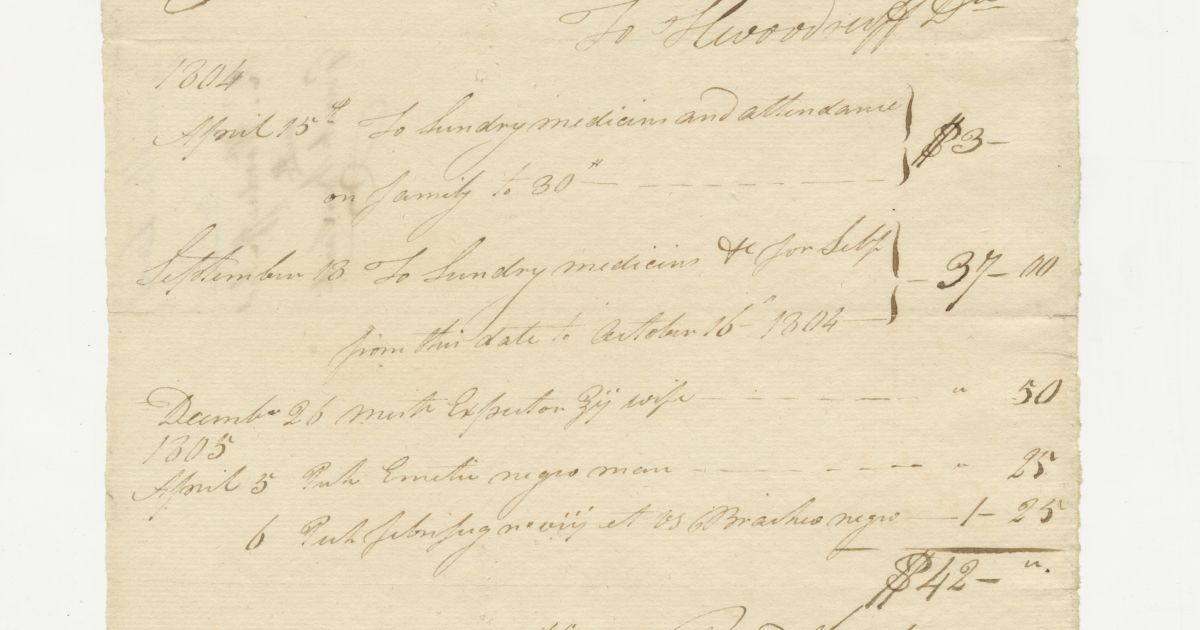 To H Woodruff Dr
1804
April 15th To Sundry medicins and attendance } $3-
on family to 30th
September 13 To Sundry medicins &c for Self } 37-00
from this date to October 16th 1804
Decembr 26 mistr Expector ℥ij wife " 50
1805
April 5 Pulv Emetic negro man " 25
6 Pulv febrifug no viij et vs Brachio negro 1-25
$42- ".